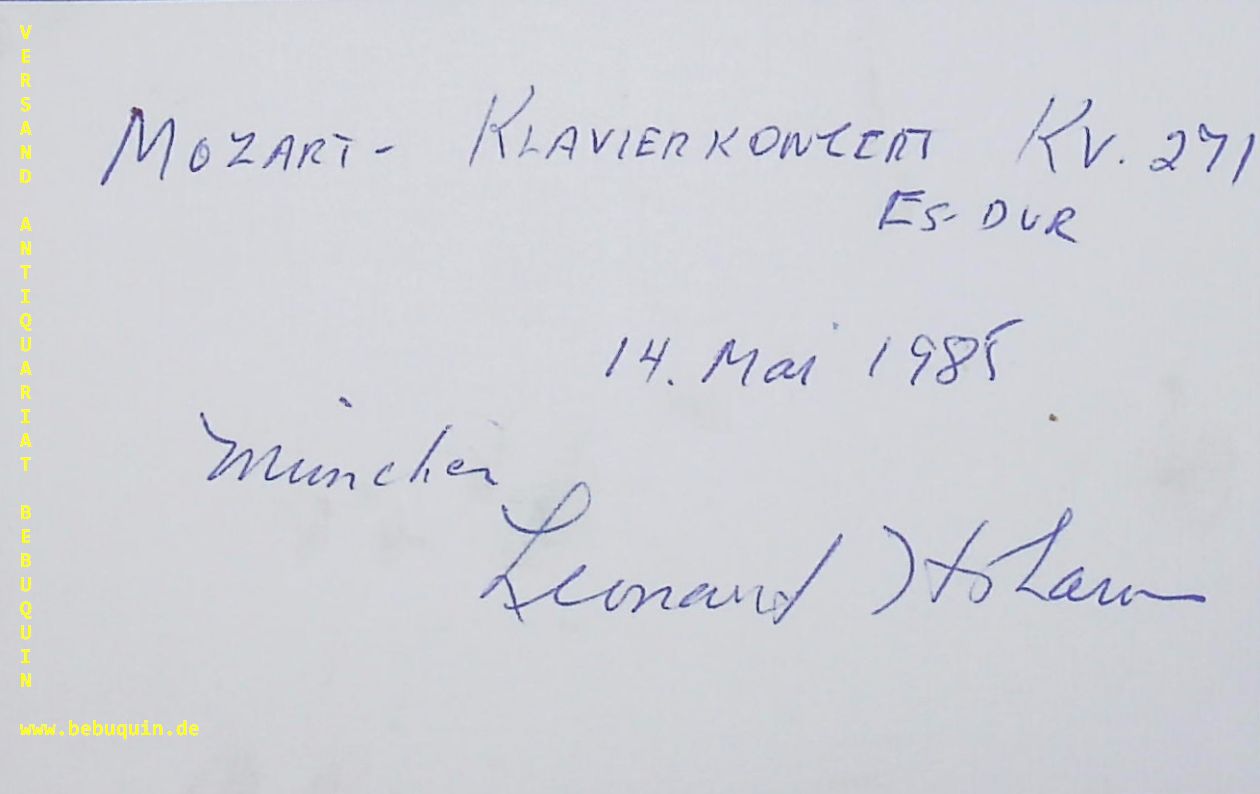 MOZART- KLAVIERKONZERT KV. 271
ES-DUR
14. Mai 1985
München
Leonard Hokanson
VERSAND ANTIQUARIAT BEBUQUIN
www.bebuquin.de